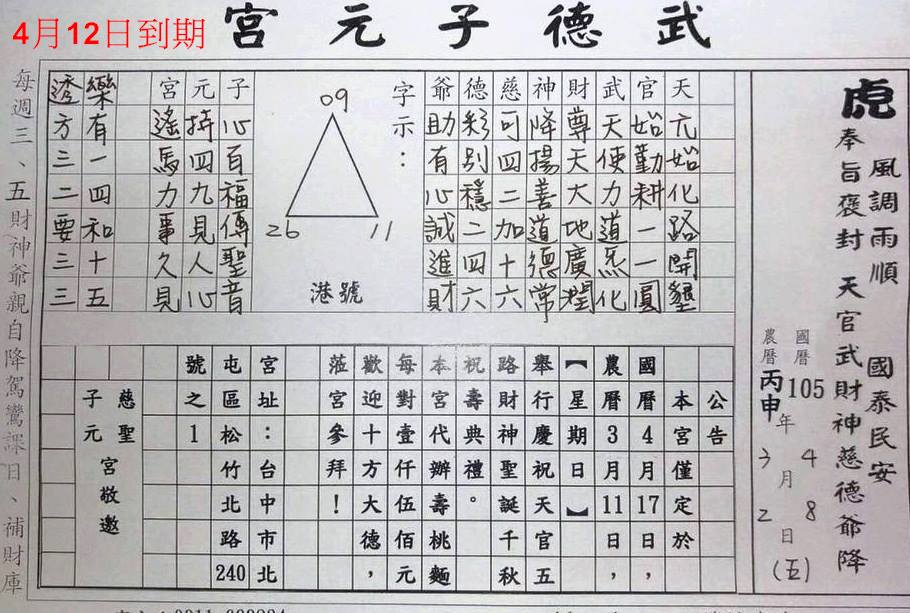 4月12日到期
武德子元宮
虎
風調雨順 國泰民安
奉旨褒封 天官武財神慈德爺降
國曆 105 年 4 月 8 日 (五)
農曆 丙申 年 3 月 2 日
天元始化路開墾
官始勤耕一一圓
武天使力道炁化
財尊天大地廣潤
神降揚善道德常
慈可四二加十六
德彩別穩二四六
爺助有心誠進財
字示：
09
26
11
港號
子心百福傳聖音
元持四九見人心
宮遙馬力事久見
樂有一四和十五
透方三二要三三
公告
本宮僅定於
國曆4月17日，
農曆3月11日，
【星期日】
舉行慶祝天官五
路財神聖誕千秋
祝壽典禮。
本宮代辦壽桃麵
每對壹仟伍佰元
歡迎十方大德，
蒞宮參拜！
宮址：台中市北
屯區松竹北路240
號之1
慈聖
子元
宮敬邀
每週三、五財神爺親自降駕鸞課日、補財庫